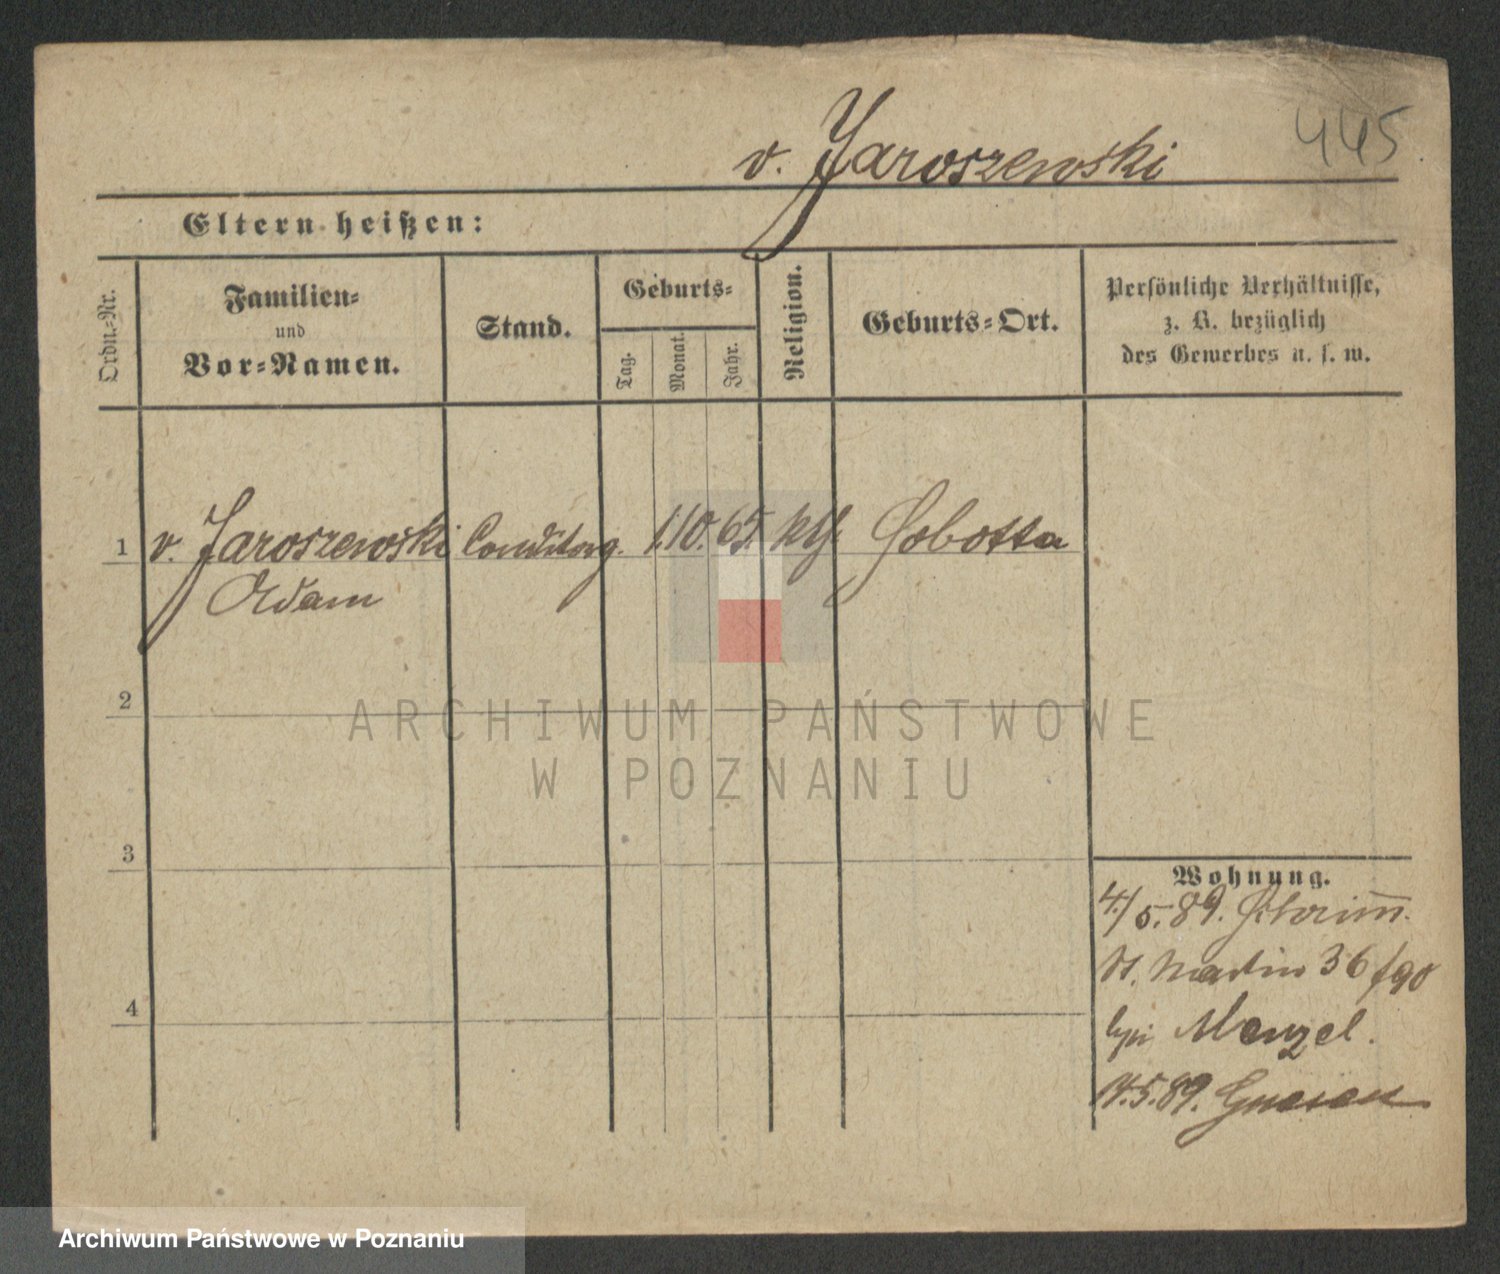 445
v. Jaroszewski
Eltern heißen:
Ordn.-Nr.
Familien-
und
Vor-Namen.
Stand.
Geburts-
Tag.
Monat.
Jahr.
Religion.
Geburts-Ort.
Persönliche Verhältnisse,
z. B. bezüglich
des Gewerbes u. s. w.
1 v. Jaroszewski Conditorg. 1.10.65. kth. Sobotta
Adam
2
3
4
Wohnung.
4./5.89. Schrimm.
St. Martin 36/90
bei Menzel.
14.5.89. Gnesen
ARCHIWUM PAŃSTWOWE
W POZNANIU
Archiwum Państwowe w Poznaniu